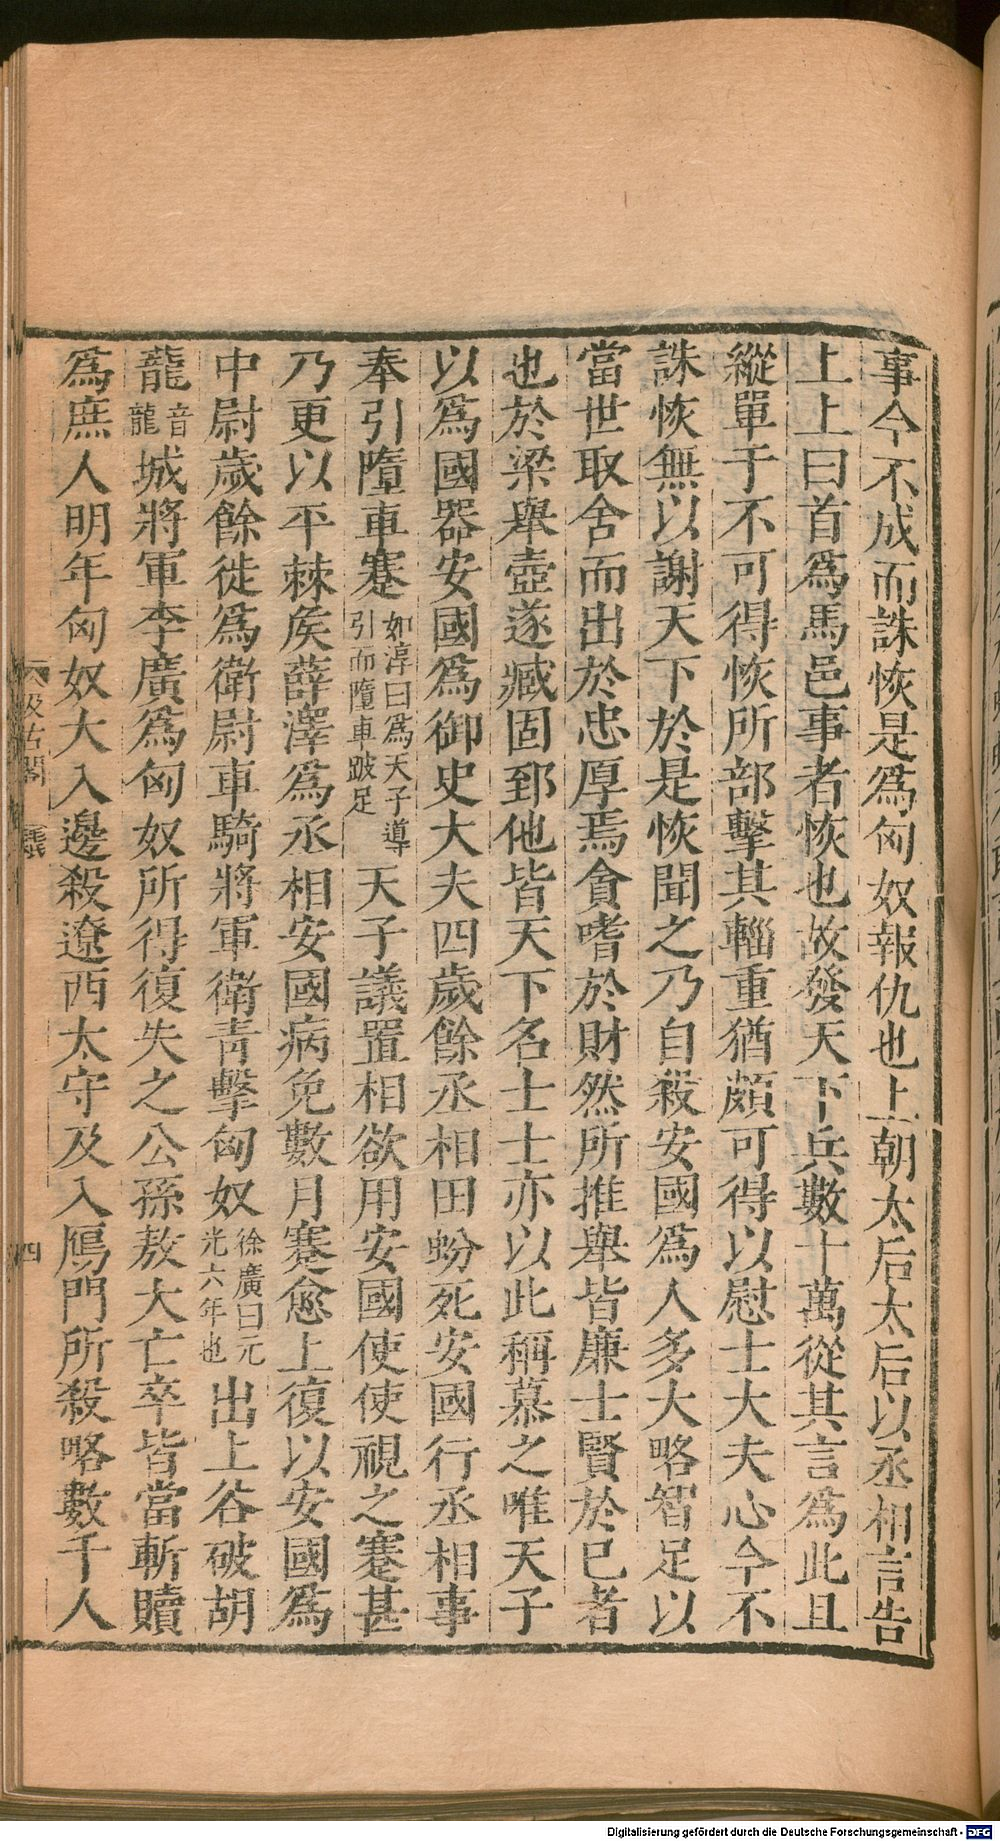 事今不成而誅恢是爲匈奴報仇也上朝太后太后以丞相言告
上上曰首爲馬邑事者恢也故發天下兵數十萬從其言爲此且
縱單于不可得恢所部擊其輜重猶頗可得以慰士大夫心今不
誅恢無以謝天下於是恢聞之乃自殺安國爲人多大略智足以
當世取舍而出於忠厚焉貪嗜於財然所推舉皆廉士賢於己者
也於梁舉壺遂臧固郅他皆天下名士士亦以此稱慕之唯天子
以爲國器安國爲御史大夫四歲餘丞相田蚡死安國行丞相事
奉引墮車蹇如淳曰爲天子導引而墮車跛足天子議置相欲用安國使使視之蹇甚
乃更以平棘矦薛澤爲丞相安國病免數月蹇愈上復以安國爲
中尉歲餘徙爲衛尉車騎將軍衛青擊匈奴徐廣曰元光六年也出上谷破胡
龍音龍城將軍李廣爲匈奴所得復失之公孫敖大亡卒皆當斬贖
爲庶人明年匈奴大入邊殺遼西太守及入鴈門所殺略數千人
汲古閣
四
Digitalisierung gefördert durch die Deutsche Forschungsgemeinschaft - DFG